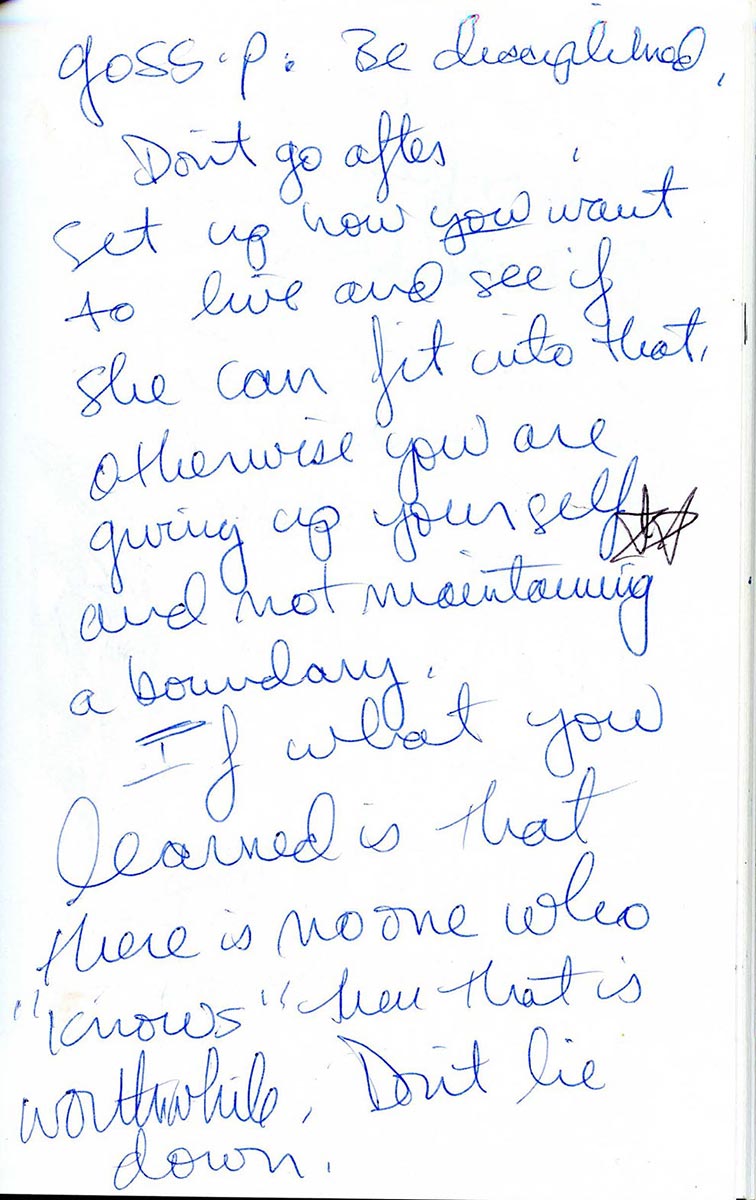 gossip: Be disciplined,
Don't go after
Set up how you want
to live and see if
she can fit into that,
otherwise you are
giving up yourself
and not maintaining
a boundary.
If what you
learned is that
there is no one who
"knows" then that is
worthwhile. Don't lie
down.